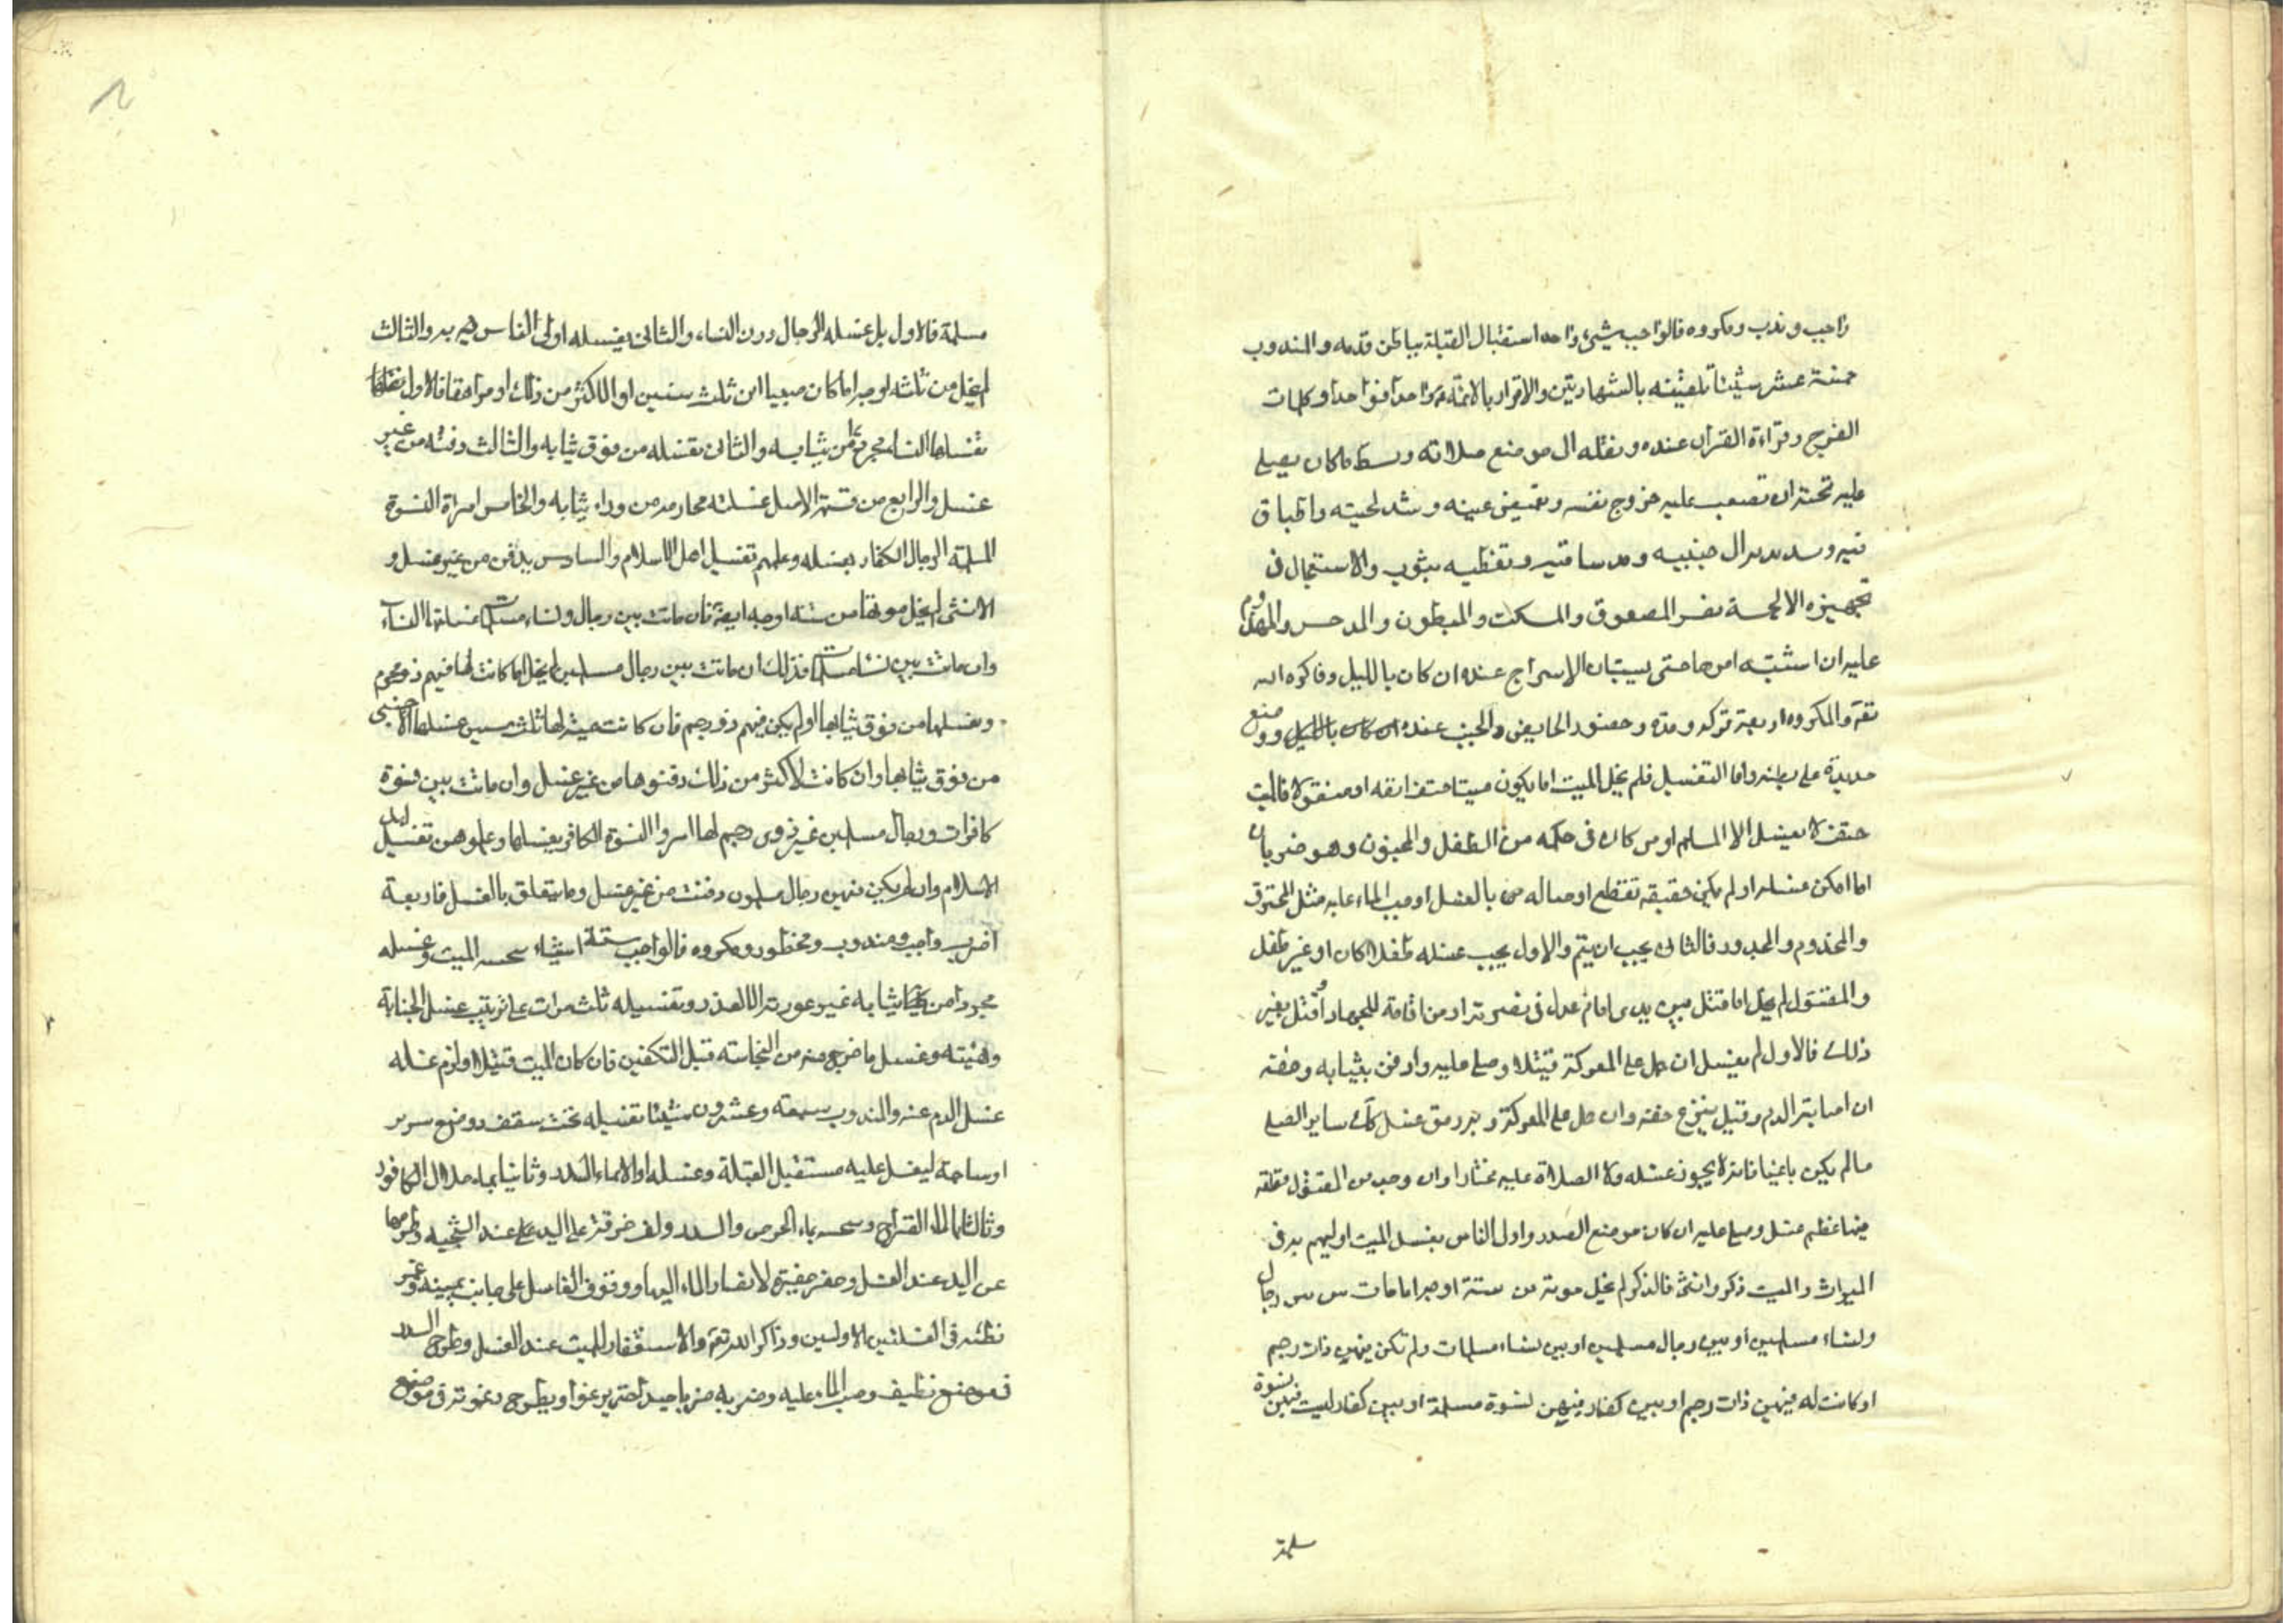 واجب وندب ومكروه فالواجب شيئ واحد استقبال القبلة بباطن قدمه والمندوب
خمسة عشر شيئا تلقينه بالشهادتين والاقرار بالائمة واحدا فواحدا وكلمات
الفرج وقراءة القران عنده ونقله الى موضع صلاته وبسط ما كان يصلي
عليه تحته ان تصعب عليه خروج نفسه وتغميض عينه وشد لحيته واطباق
فيه ومد يديه الى جنبيه ومد ساقيه وتغطيه بثوب والاستعجال في
تجهيزه الا لخمسة نفر المصعوق والمبطون والمهدوم
عليه ان اشتبه امرها حتى يستبان الاسراج عنده ان كان بالليل وذاكره الله
تعه والمكروه اربعة تركه وحده وحضور الحايض والجنب عنده ان كان بالليل ووضع
حديدة على بطنه واما التغسيل فلم يخل الميت اما يكون ميتا حتف انفه او مقتولا فالميت
حتفه لا يغسل الا المسلم او من كان في حكمه من الطفل والمجنون وهو ضربان
اما امكن غسله او لم يكن خفيفة تقطع اوصاله من بالغسل او صب الماء عليه مثل المحترق
والمجذوم والمجدور فالثاني يجب ان يتيم والاول يجب غسله طفلا كان او غير طفل
والمقتول لم يخل اما قتل بين يدى امام عدل في نصرته او من اقامه للجهاد او قتل بغير
ذلك فالاول لم يغسل ان حمل على المعركة قتيلا وصلى عليه وادفن بثيابه وخفه
ان اصابته الدم وقيل ينزع خفه وان حمل على المعركة وبه رمق غسل كالى ساير القتلى
مالم يكن باغيا فانه لا يجوز غسله ولا الصلاة عليه مختارا وان وجد من المقتول قطعة
فيها عظم غسل وصلى عليه ان كان موضع الصدر واولى الناس بغسل الميت اوليهم به في
الميراث والميت ذكر وانثى فالذكر لم يخل موته من ستة اوجه اما مات بين رجال
ونساء مسلمين او بين رجال مسلمين او بين نساء مسلمات ولم تكن فيهن ذات رحم
او كانت له فيهن ذات رحم او بين كفار فيهن نسوة مسلمة او بين كفار ليست فيهن نسوة
سلمة
مسلمة فالاول بل غسله الرجال دون النساء والثاني يغسله اولى الناس به والثالث
لم يخل من ثلثه اوجه اما كان صبيا ابن ثلث سنين او لاكثر من ذلك او مراهقا فالاول
تغسلها النساء مجردا من ثيابه والثاني تغسله من فوق ثيابه والثالث دفنه من غير
غسل والرابع من قسمة الاصل غسلته محارمه من وراء ثيابه والخامس امراة النسوة
المسلمة الرجال الكفار بغسله وعلمهم تغسيل اهل الاسلام والسادس يدفن من غير غسل و
الانثى لم يخل موتها من ستة اوجه ايضا فان ماتت بين رجال ونساء مسلمات غسلتها النساء
وان ماتت بين نساء مسلمات فذلك ان ماتت بين رجال مسلمين لم يخل اما كانت لها فيهم ذو محرم
وغسلها من فوق ثيابها او لم يكن فيهم ذو رحم فان كانت صبية لها ثلث سنين غسلها الاجنبي
من فوق ثيابها وان كانت لاكثر من ذلك دفنوها من غير غسل وان ماتت بين نسوة
كافرات ورجال مسلمين غير ذوى رحم لها امروا النسوة الكافر بغسلها وعلموهن تغسيل اهل
الاسلام وان لم يكن فيهن رجال مسلمون دفنت من غير غسل وما يتعلق بالغسل فاربعة
اضرب واجب ومندوب ومحظور ومكروه فالواجب ستة اشياء الميت وغسله
مجردا من ثيابه غير عورته الا لعذر وتغسيله ثلث مرات على ترتيب غسل الجنابة
وهيئته وغسل ما خرج منه من النجاسته قبل التكفين فان كان الميت قتيلا ولزم غسله
غسل الدم عنه والمندوب سبعة وعشرون شيئا تغسيله تحت سقف ووضع سرير
او ساجة ليغسل عليه مستقبل القبلة وغسله اولا بماء السدر وثانيا بماء جلال الكافور
وثالثا بالماء القراح بماء الحرض والسدر ولف خرقة على اليد عند وطرحها
عن اليد عند الغسل وحفر حفيرة لانصاب الماء اليها ووقوف الغاسل على جانب يمينه وغمز
بطنه في الغسلتين الاولتين وذاكر الله تعه والاستغفار للميت عند الغسل وطرح السدر
في موضع نظيف وصب الماء عليه وضربه ضربا جيدا حتى يرغوا ويطرح رغوته في موضع